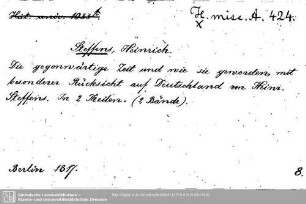 Hist. univ. 1033b
H. misc. A. 424.
x
Steffens, Heinrich.
Die gegenwärtige Zeit und wie sie geworden, mit
besonderer Rücksicht auf Deutschland von Heinr.
Steffens. In 2 Theilen. (2 Bände).
Berlin 1817. 8.
Sächsische Landesbibliothek -
Staats- und Universitätsbibliothek Dresden